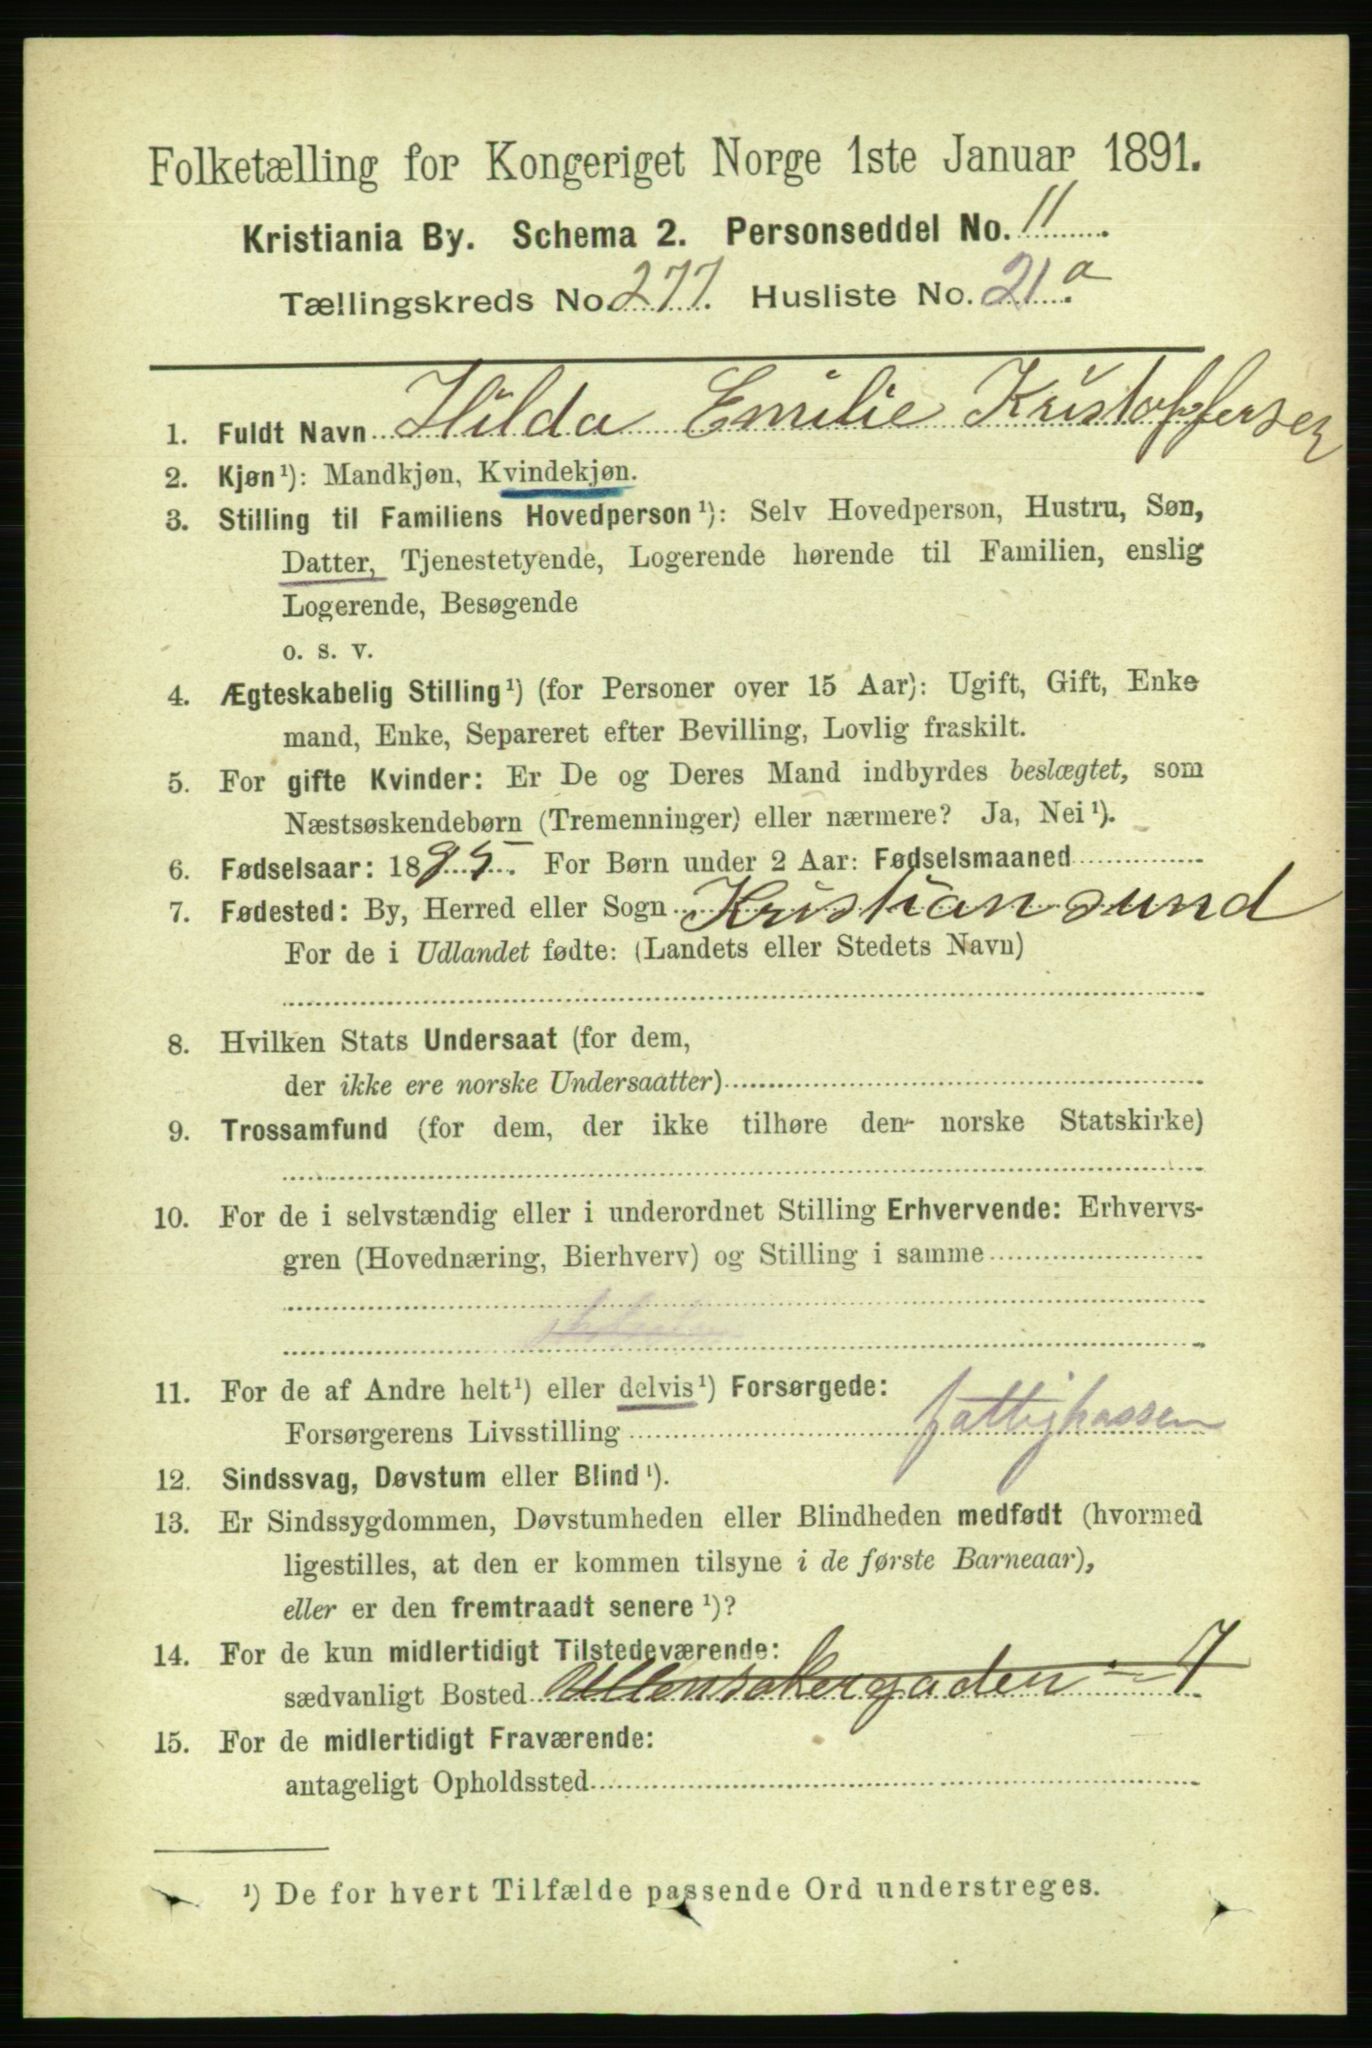 Folketælling for Kongeriget Norge 1ste Januar 1891.
Kristiania By. Schema 2. Personseddel No. 11
Tællingskreds No. 277. Husliste No. 21a.
1. Fuldt Navn Hilda Emilie Kristoffersen
2. Kjøn¹): Mandkjøn, Kvindekjøn.
3. Stilling til Familiens Hovedperson¹): Selv Hovedperson, Hustru, Søn,
Datter, Tjenestetyende, Logerende hørende til Familien, enslig
Logerende, Besøgende
o. s. v.
4. Ægteskabelig Stilling¹) (for Personer over 15 Aar): Ugift, Gift, Enke
mand, Enke, Separeret efter Bevilling, Lovlig fraskilt.
5. For gifte Kvinder: Er De og Deres Mand indbyrdes beslægtet, som
Næstsøskendebørn (Tremenninger) eller nærmere? Ja, Nei¹).
6. Fødselsaar: 18 For Børn under 2 Aar: Fødselsmaaned
7. Fødested: By, Herred eller Sogn Kristiansund
For de i Udlandet fødte: (Landets eller Stedets Navn)
8. Hvilken Stats Undersaat (for dem,
der ikke ere norske Undersaatter)
9. Trossamfund (for dem, der ikke tilhøre den norske Statskirke)
10. For de i selvstændig eller i underordnet Stilling Erhvervende: Erhvervs-
gren (Hovednæring, Bierhverv) og Stilling i samme
11. For de af Andre helt¹) eller delvis¹) Forsørgede:
Forsørgerens Livsstilling fattighassen
12. Sindssvag, Døvstum eller Blind¹).
13. Er Sindssygdommen, Døvstumheden eller Blindheden medfødt (hvormed
ligestilles, at den er kommen tilsyne i de første Barneaar),
eller er den fremtraadt senere¹)?
14. For de kun midlertidigt Tilstedeværende:
sædvanligt Bosted Ullensakergaden - 7
15. For de midlertidigt Fraværende:
antageligt Opholdssted
¹) De for hvert Tilfælde passende Ord understreges.